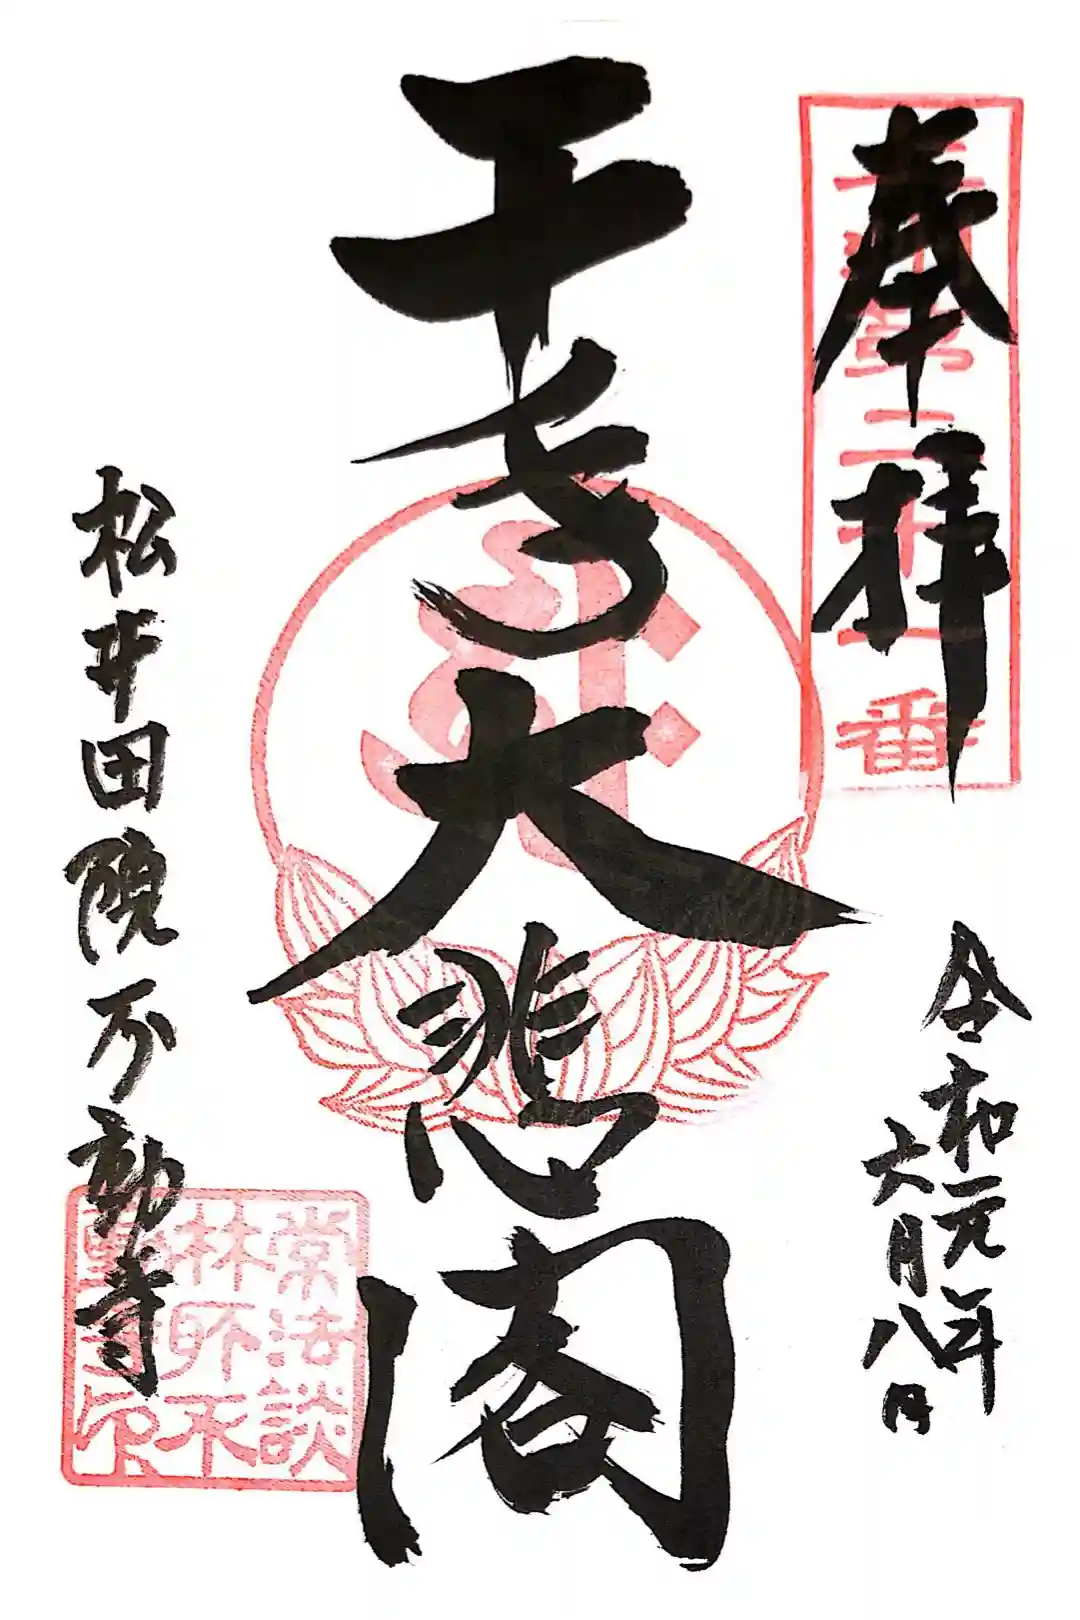 奉拝
番
令和元年
六月八日
千手大悲閣
松井田院不動寺
常法談
林所不
動寺印